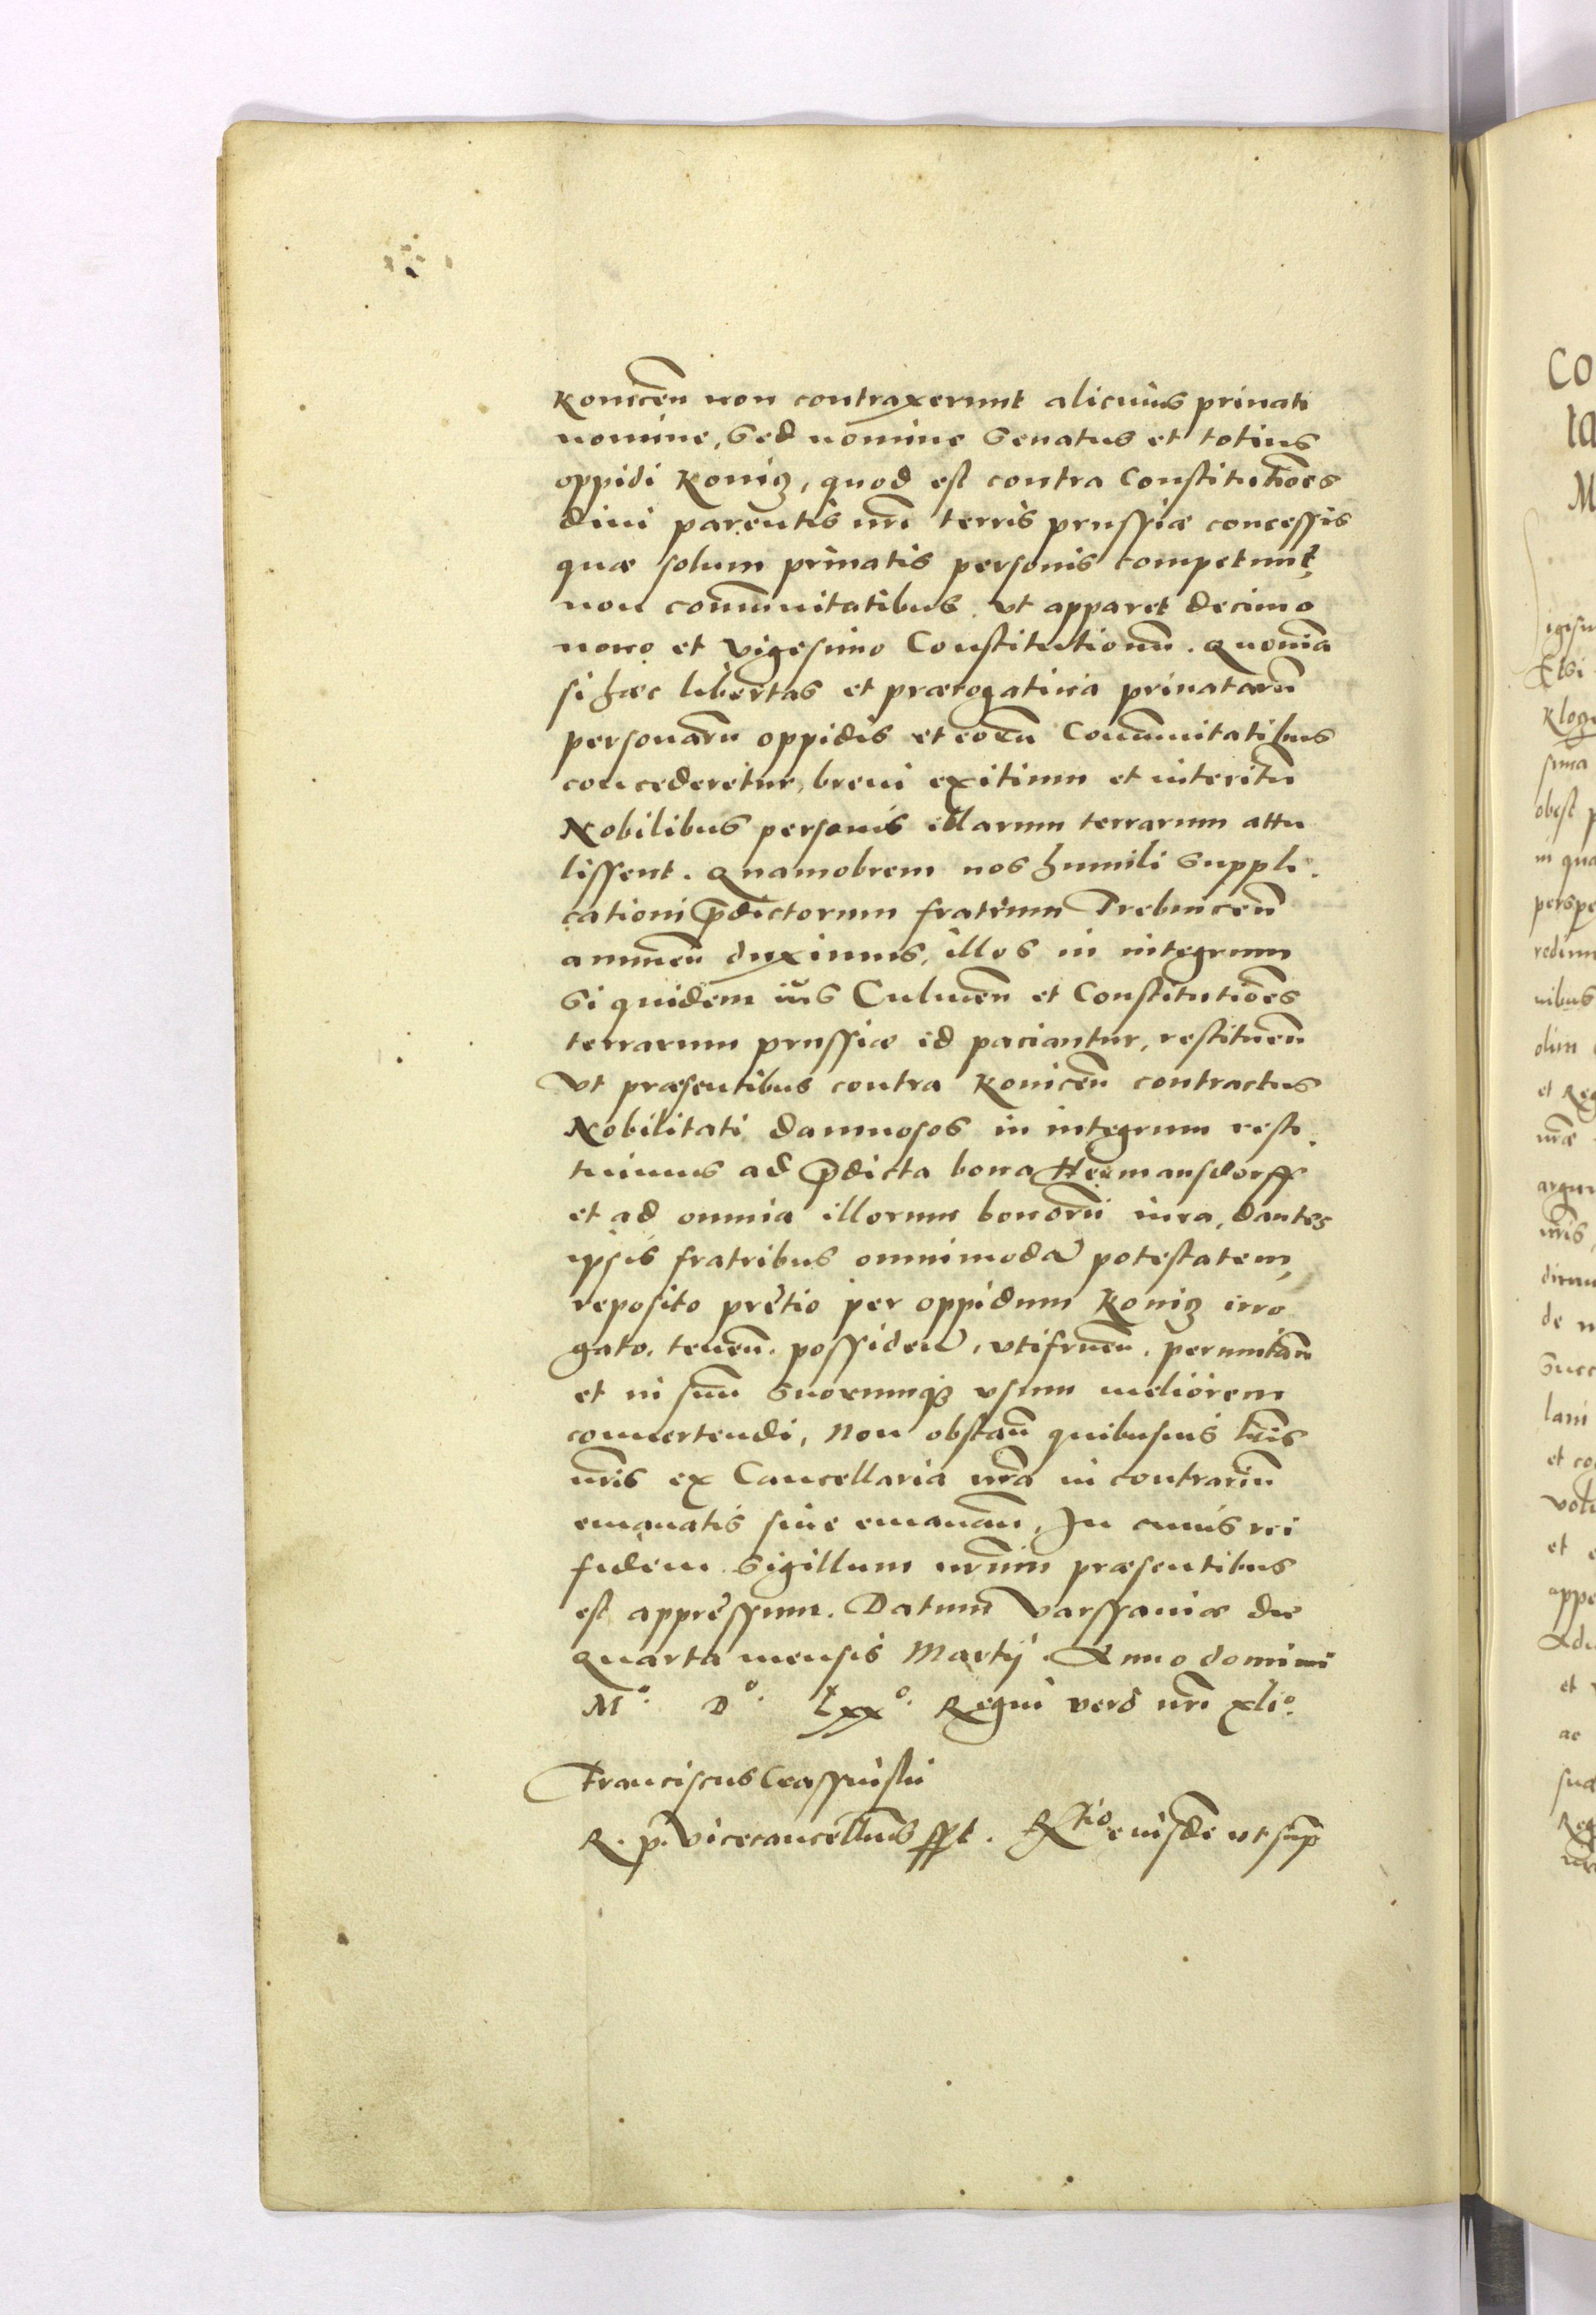 Konicen̄ non contraxerunt alicuius priuati
nomine, sed nomine Senatus et totius
oppidi Koniz, quod est contra Constitutiōes
diui parentis nr̄i terris prussiæ concessis
quæ solum priuatis personis competunt,
non com̄unitatibus, vt apparet decimo
nono et vigesimo Constitutionū. Quoniā
si hæc libertas et prærogatiua priuatarū
personarū oppidis et eorū Com̄unitatibus
concederetur, breui exitium et interitū
Nobilibus personis illarum terrarum attu
lissent. Quamobrem nos humili suppli.
cationi p̄dictorum fratrum Trebnicen̄
annuen̄ duximus, illos in integrum
Si quidem ius Culmen̄ et Constitutiōes
terrarum prussiæ id paciantur, restituen̄
Vt præsentibus contra Konicen̄ contractus
Nobilitati damnosos in integrum resti.
tuimus ad p̄dicta bona Hermansdorff
et ad omnia illorum bonorū iura, dantes
ipsis fratribus omnimodā potestatem,
reposito pretio per oppidum Koniz irro
gato, tenen̄. possiden̄, vtifruen̄. permutan̄
et in suū suorumqȝ vsum meliorem
conuertendi, Non obstan̄ quibusuis lr̄is
nr̄is ex Cancellaria nr̄a in contrariū
emanatis siue emanan̄. In cuius rei
fidem Sigillum nr̄um præsentibus
est appressum. Datum Varssauiæ die
quarta mensis Martij. Anno domini
M°. D°. Lxx°. Regni verò nr̄i xli°.
Franciscus Crassinski
R. p. Vicecancellarius sspt. Rtio eiusdē vt sup̄
Co
la
M
igisu
Etsi
Kloz
sima
obest p
in qua
perspe
redim
nibus
olim
et Reg
nr̄æ
argu
nr̄is,
dimi
de n
Succ
lani
et co
volu
et e
appe
Adu
et v
ac
sua
Reg